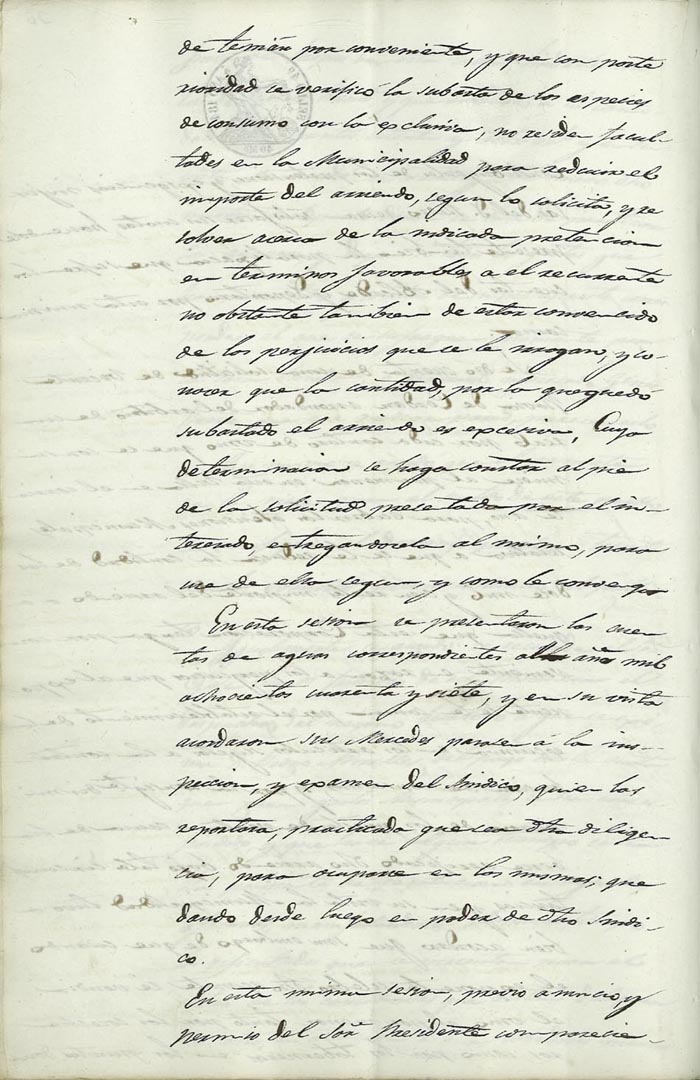 de temián por conveniente, y que con poste
rioridad se verificó la subasta de los especies
de consumo con la exclusiva, no reside facul-
tades en la Municipalidad para reducir el
importe del arriendo, segun lo solicita, y re
solver acerca de la indicada pretencion
en terminos favorables a el recurrente
no obstante tambien de estar convencido
de los perjuicios que se le irrogan, y co-
nocer que la cantidad, por la que quedó
subastado el arriendo es excesiva, Cuya
determinacion se haga constar al pie
de la solicitud presentada por el in-
teresado, entregandosela al mismo, para
use de ella segun, y como le convenga
En esta sesion se presentaron las cuen
tas de aguas correspondientes año mil
ochocientos cuarenta y siete, y en su vista
acordaron sus Mercedes pasasen á la ins-
peccion, y examen del Sindico, quien las
reportara, practicada que sea dha diligen-
cia, para ocuparse en las mismas; que
dando desde luego en poder de dho Sindi-
co.
En esta misma sesion, previo anuncio, y
permiso del Sor Presidente comparecie-